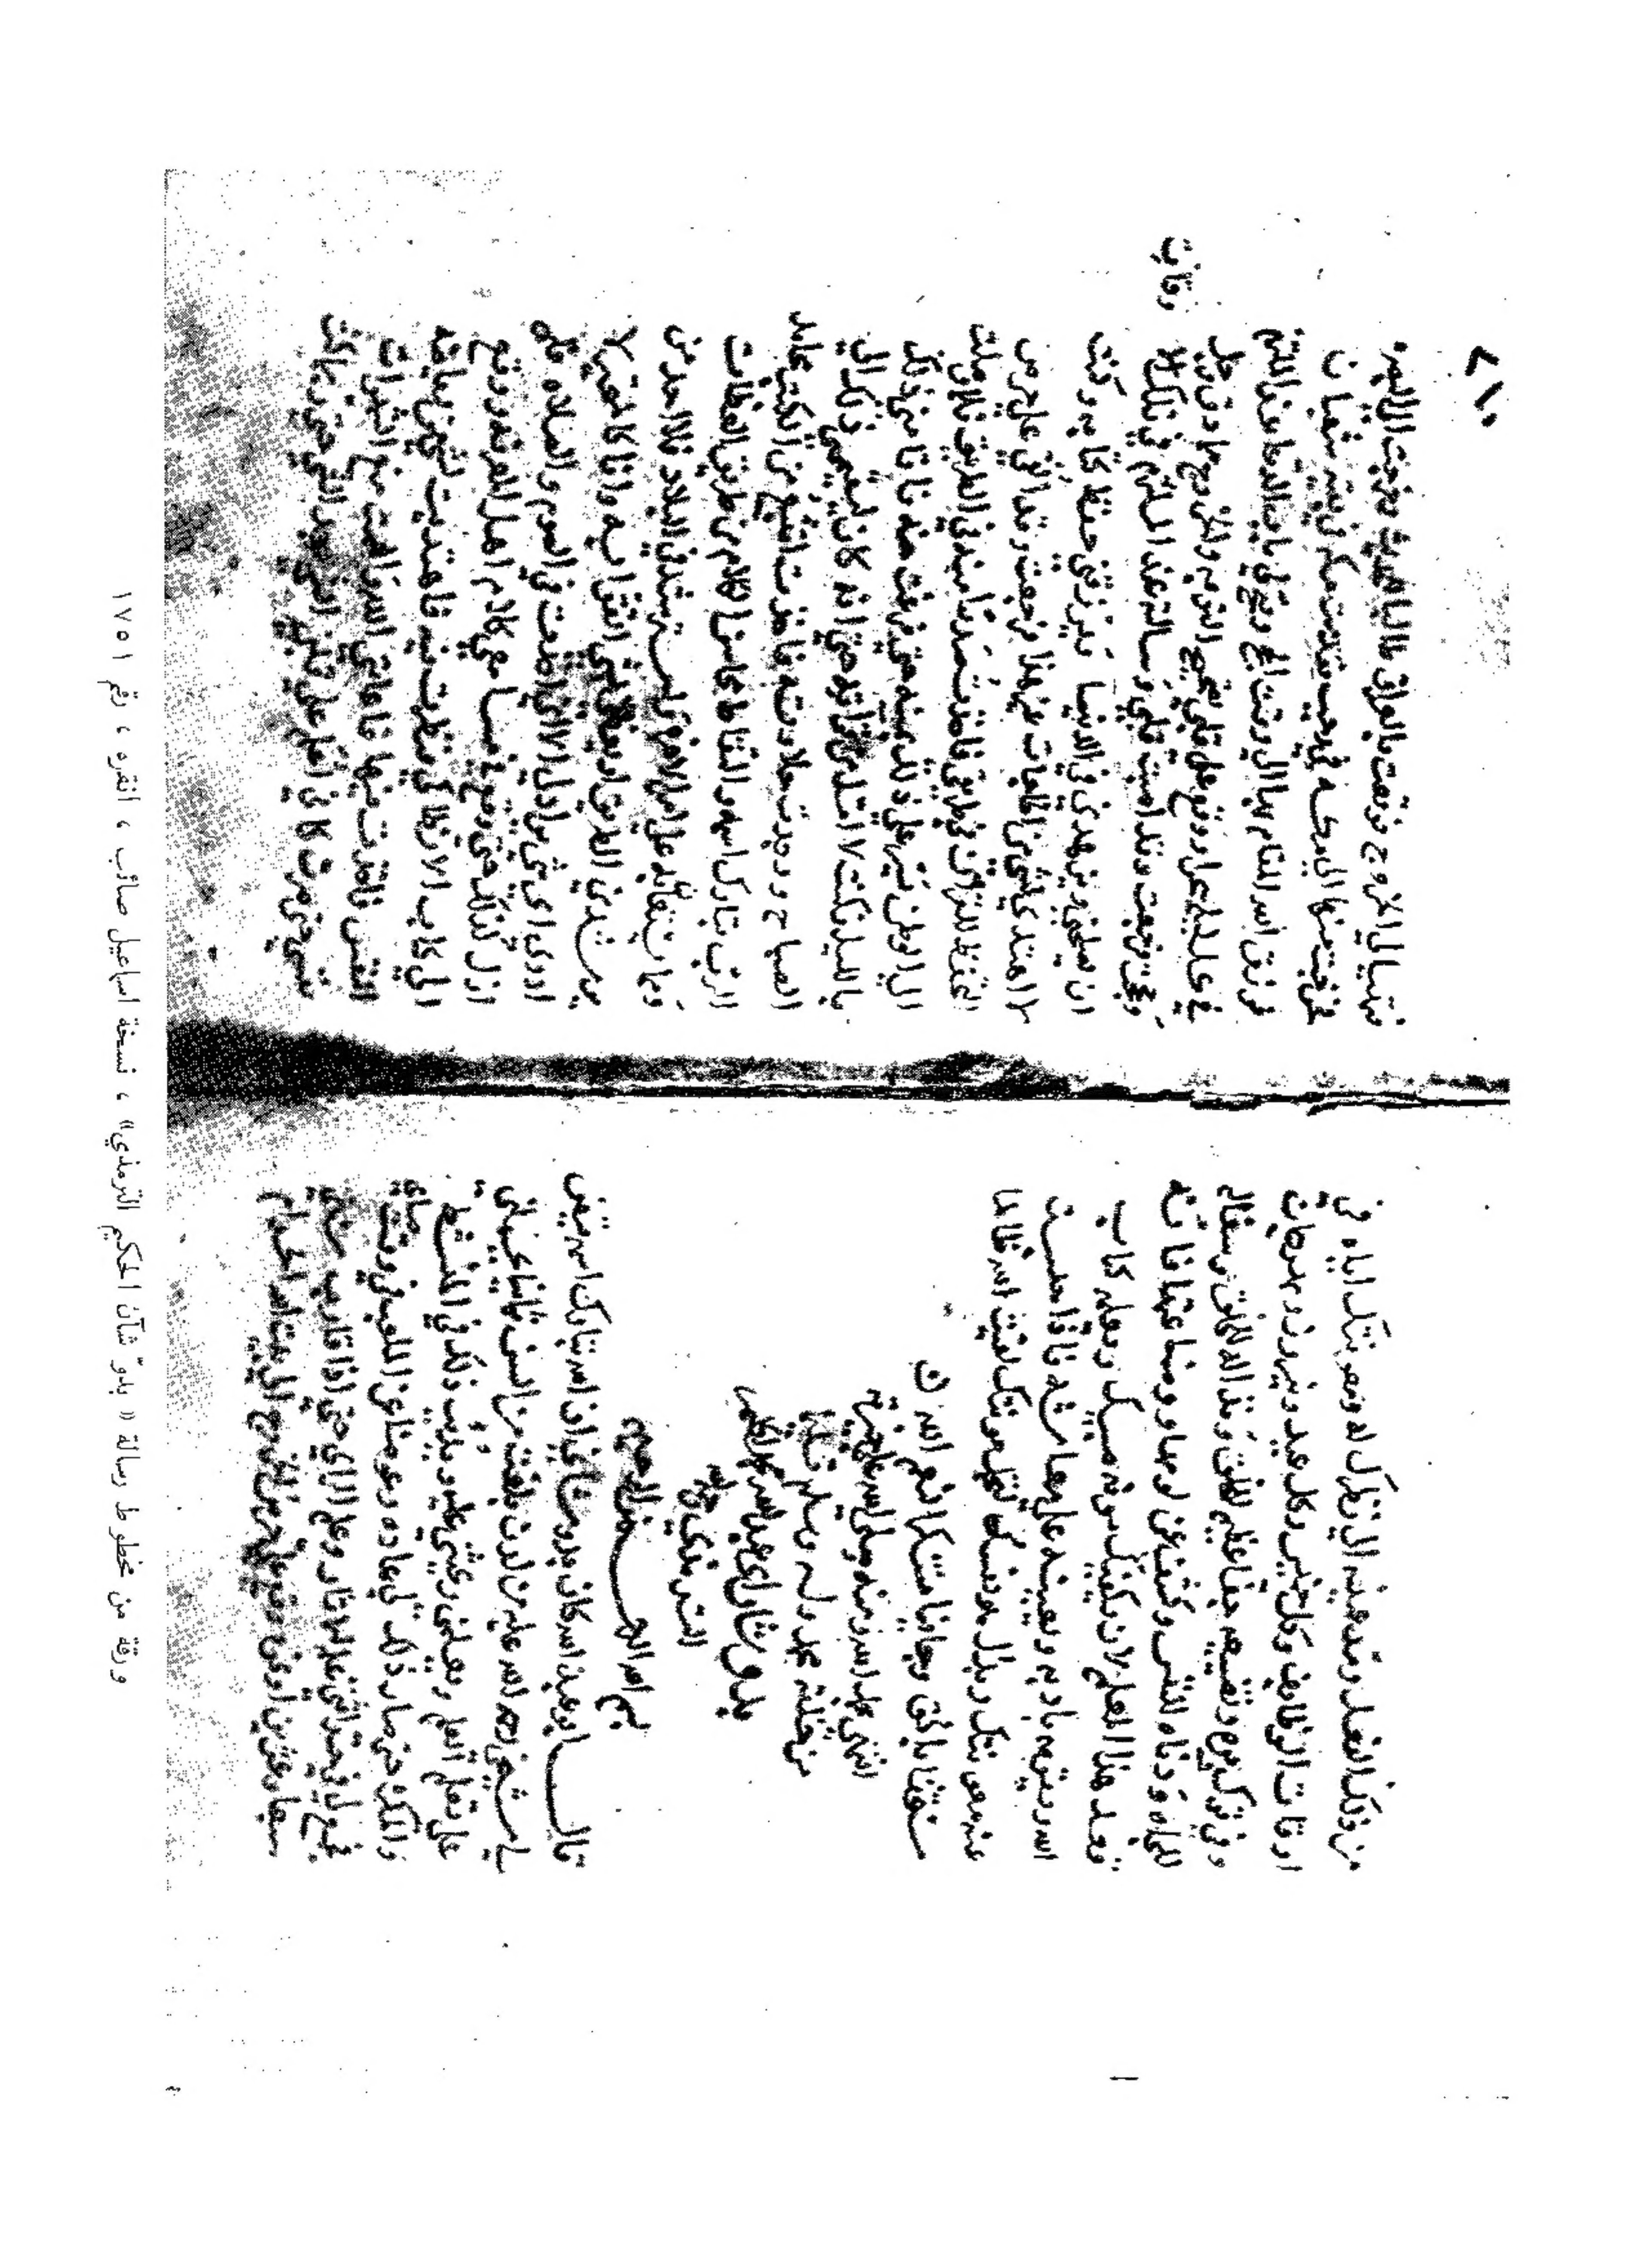 من ذلك الفعل ومد عينه الي نظرك له ومعرفتك اياه في
اوقات الوظايف وكل خميس وكل عيد ونيروز ومهرجان
وفي كل يوم
للجاه وزناه للنفس وكشف عن لومها
تعد هذا العلم لان يكفيك مونه وبعلم كتاب
الله ويتهم بادبه ويعينه علي معاشه فاذا احسست
سفقتنا بالحق وجانبا انعم الله ن
انتهي بحمد الله ومنه وصلي الله علي خيرته
من خلقه محمد واله وسلم تسليما
بدو شان ابي عبد الله محمد الحكيم
الترمذي رحمه الله
بسم الله الرحمن الرحيم
قال ابو عبد الله كان بدو شاني ان الله تبارك اسمه قيض
لي شيخي رحمه الله عليه من لدن بلغت من السن ثمانيا يحملني
علي تعلم العلم ويعلمني ويحثني عليه ويديب ذلك في المنشط
والمكره حتي صار ذلك لي عاده وعوضا عن اللعب في وقت صباي
فجمع لي في حداثتي علم الاثار وعلم الراي حتي اذا قارب سني
سبعا وعشرين او نحوه وقع علي حرص الخروج الي بيت الله الحرام
٧١٠
فتهيا لي الخروج فوقعت بالعراق طالبا للحديث وخرجت الي البصره
فخرجت منها الي مكه في رجب فقدمت مكه في بقيه شعبان
فرزق الله المقام بها الي وقت الحج وفتح لي باب الدعا عند الملتزم
في كل ليله سحرا ووقع علي قلبي تصحيح التوبه والخروج مما دق وجل
وحججت فرجعت وقد اصبت قلبي وسالته عند الملتزم في تلك الاوقات
ان يصلحني ويزهدني في الدنيا ويرزقني حفظ كتابه وكنت
لا اهتدي لشي من الحاجات غير هذا فرجعت وقد القي علي حرص
التحفظ للقران في طريقي فاخذت صدرا منه في الطريق فلما وصلت
الي الوطن يسر علي ذلك بمنه حتي فرغت منه فاقامني ذلك
بالليل فكنت لا امل من قراته حتي انه كان ليقيمني ذلك الي
الصباح ووجدت حلاوته فاخذت اتتبع من الكتب محامد
الرب تبارك اسمه والتقاط محاسن الكلام من طريق العظات
وما يستعان به علي امر الاخره استرشد في البلاد فلا اجد من
يرشدني الطريق او يعظني بشي اتقوا به وانا كالمتحير لا
ادري اي شي يراد بي الا اني اخذت في الصوم والصلاه فلم
ازل كذلك حتي وقع في مسامعي كلام اهل المعرفه ووقع
الي كتاب الانطاكي فنظرت فيه فاهتديت لشي من رياضه
النفس فاخذت فيها فاعانني الله والهمت منع الشهوات
نفسي حتي صرت كاني اعلم علي قلبي الشي بعد الشي حتي ربما كنت
ورقة من مخطوط رسالة « بدوّ شأن الحكيم الترمذي» ، نسخة اسماعيل صائب ، انقره ، رقم ١٧٥١